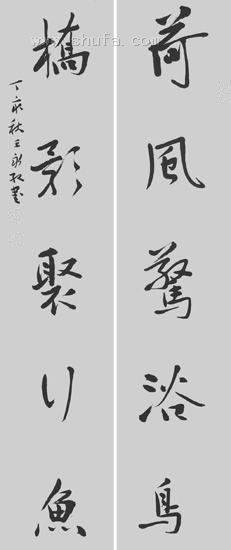 荷風驚浴鳥
橋影聚行魚
丁亥秋王
shufa.com